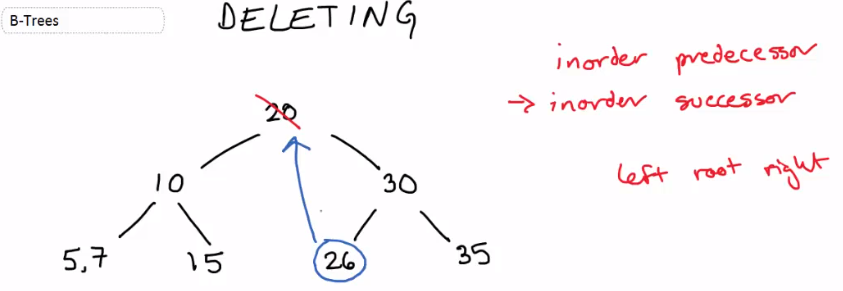 B-Trees
DELETING
inorder predecessor
→ inorder successor
20
left root right
10 30
5,7 15 26 35